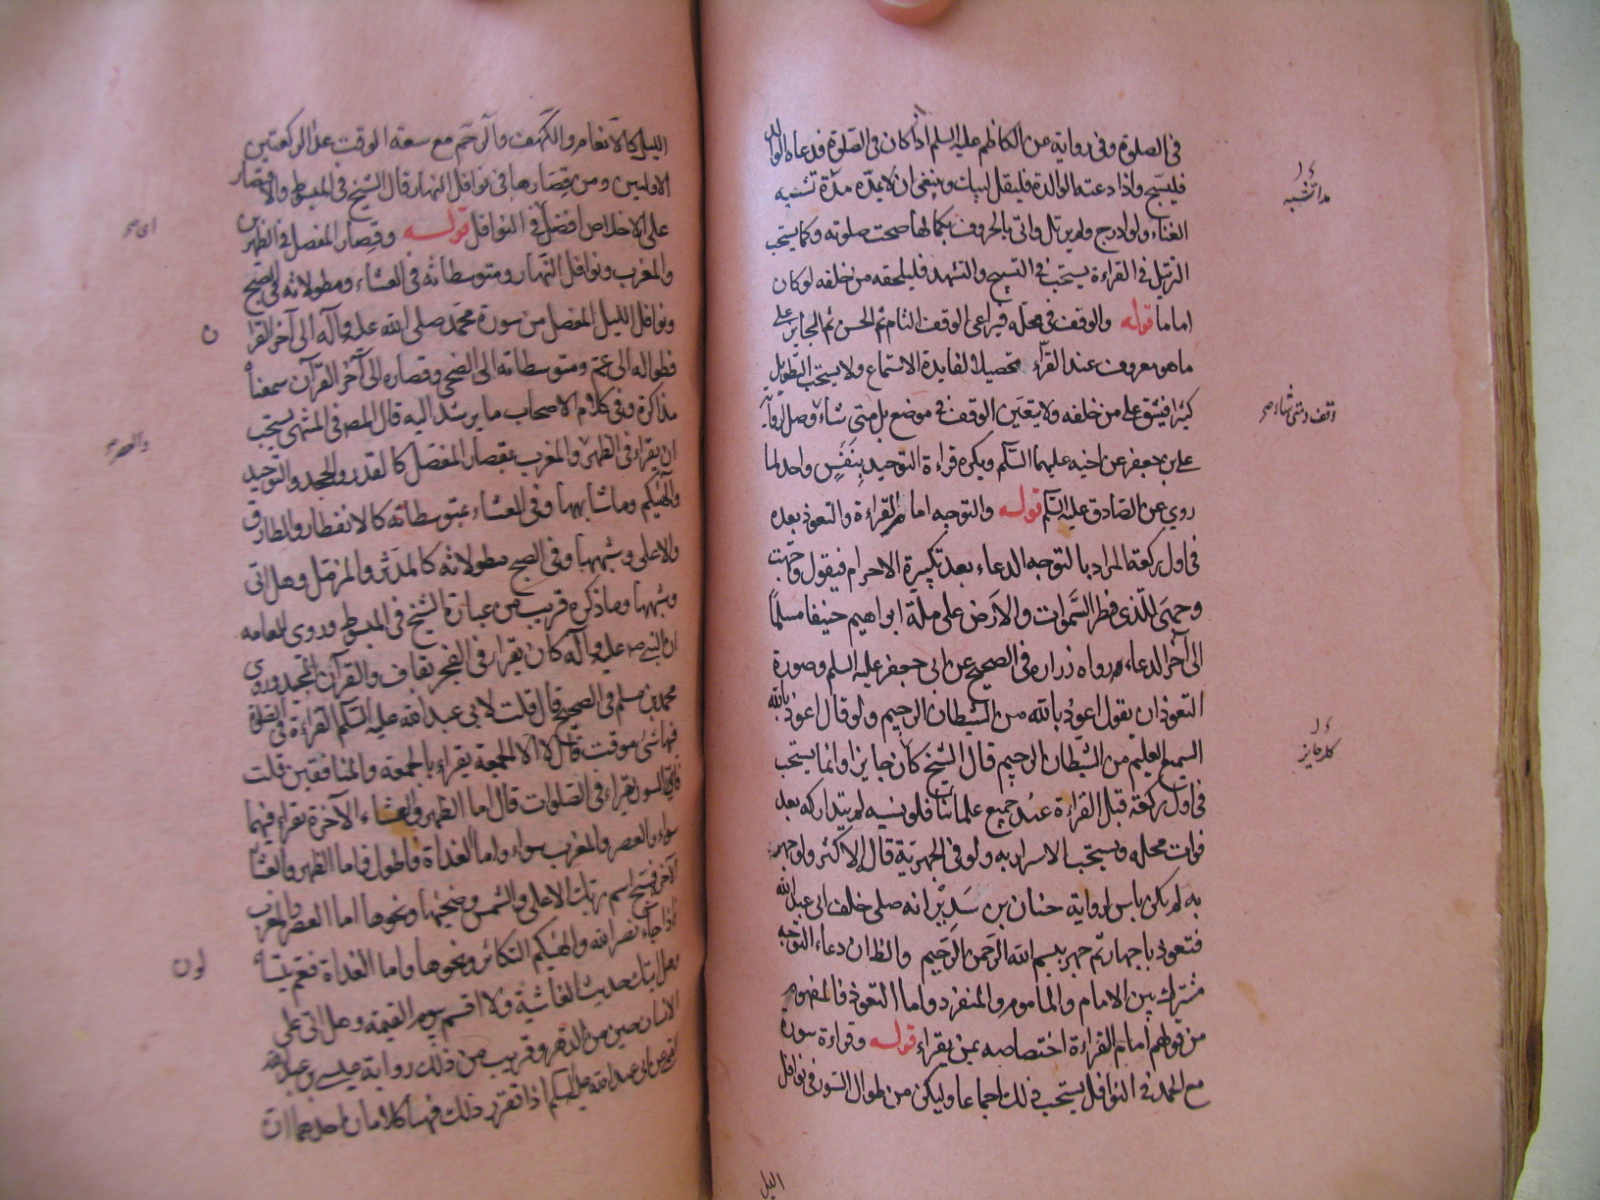 في الصلوة وفي رواية عن الكاظم عليه السلم اذا كان في الصلوة فدعاه الوالد
فليسبح واذا دعته الوالدة فليقل لبيك وينبغي ان لا يمده مدة تشبه
الغناء ولو ادرج ولم يرتل واتى بالحروف بكمالها صحت صلوته وكما يستحب
الترتيل في القراءة يستحب في التسبيح والتشهد فليلحقه من خلفه لو كان
اماما قوله والوقف في محله فيراعى الوقف التام ثم الحسن ثم الجايز على
ما هو معروف عند القرّاء تحصيلا لفايدة الاستماع ولا يستحب التطويل
كثيرا فيشق على من خلفه ولا يتعين الوقف في موضع بل متى شاء وصل لرواية
علي بن جعفر عن اخيه عليهما السّلم ويكره قراءة التوحيد بنَفَسٍ واحد لما
روي عن الصادق عليه السّلم قوله والتوجه امام القراءة والتعوذ بعده
في اول ركعة المراد بالتوجه الدعاء بعد تكبيرة الاحرام فيقول وجّهت
وجهي للّذي فطر السَّموات والاَرض على ملّة ابراهيم حنيفا مسلمًا
الى آخر الدعاء رواه زرارة في الصحيح عن ابي جعفر عليه السلم وصورة
التعوذ ان يقول اعوذ بالله من الشيطان الرجيم ولو قال اعوذ بالله
السميع العليم من الشيطان الرجيم قال الشيخ كان جايزا وانما يستحب
في اول ركعة قبل القراءة عند جميع علمائنا فلو نسيه لم يتداركه بعد
فوات محله ويستحب الاسرار به ولو في الجهرية قال الاكثر ولو جهر
به لم يكن باس لرواية حنان بن سَدِيْر انه صلى خلف ابي عبد الله
فتعوذ باجهار ثم جهر ببسم الله الرّحمن الرّحيم والظ ان دعاء التوجه
مشترك بين الامام والماموم والمنفرد واما التعوذ فالمفهوم
من قولهم امام القراءة اختصاصه بمن يقراء قوله وقراءة سورة
مع الحمد في النوافل يستحب ذلك اجماعا وليكن من طوال السّور في نوافل
الليل
مدا تشبه
كله جايز
الليل كالانعام والكهف والحم مع سعة الوقت عدا الركعتين
الاوليين ومن قصارها في نوافل النهار قال الشيخ في المبسوط والاقتصار
على الاخلاص افضل في النوافل قوله وقصار المفصل في الظهرين
والمغرب ونوافل النهار ومتوسطاته في العشاء ومطولاته في الصبح
ونوافل الليل المفصل من سورة محمد صلى الله عليه وآله الى آخر القرا
فطواله الى عم ومتوسطاته الى الضحى وقصاره الى آخر القرآن سمعناه
مذاكرة وفي كلام الاصحاب ما يرشد اليه قال المص في المنتهى يستحب
ان يقراء في الظهر والمغرب بقصار المفصل كالقدر والجحد والتوحيد
والهيكم وما شابهها وفي العشاء بمتوسطاته كالانفطار والطارق
والاعلى وشبهها وفي الصبح مطولاته كالمدثر والمزمل وهل اتى
وشبهها وما ذكره قريب من عبارة الشيخ في المبسوط وروى العامه
ان النبي ص عليه وآله كان يقرا في الفجر بقاف والقرآن المجيد وروى
محمد بن مسلم في الصحيح قال قلت لابي عبد الله عليه السّلم القراءة في الصلوة
فيها شئ موقت قال لا الا الجمعة يقراء بالجمعة والمنافقين قلت
فاي السور يقراء في الصلوات قال اما الظهر والعشاء الآخرة يقراء فيهما
سواء والعصر والمغرب سواء واما الغداة فاطول فاما الظهر والعشاء
الآخرة فسبح اسم ربك الاعلى والشمس وضحيها ونحوها اما العصر والمغرب
فاذا جاء نصر الله والهيكم التكاثر ونحوها واما الغداة فعم يتساء
وهل اتيك حديث الغاشية ولا اقسم بيوم القيمة وهل اتى على
الانسان حين من الدهر وقريب من ذلك رواية عيسى بن عبد الله
القمي عن ابي عبد الله عليه السلم اذا تقرر ذلك فهنا كلامان احدهما ان
اى ص
ن
والعصر ص
لون